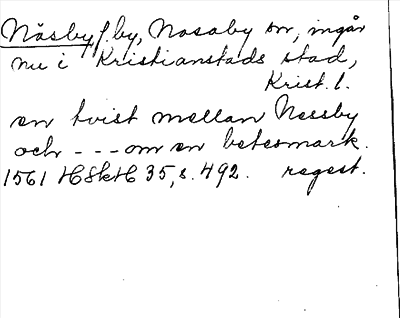 Näsby f. by, Nosaby sn, ingår
nu i Kristianstads stad,
Krist. l.
en tvist mellan Nessby
och --- om en betesmark.
1561 HSkH 35, s. 492. regest.